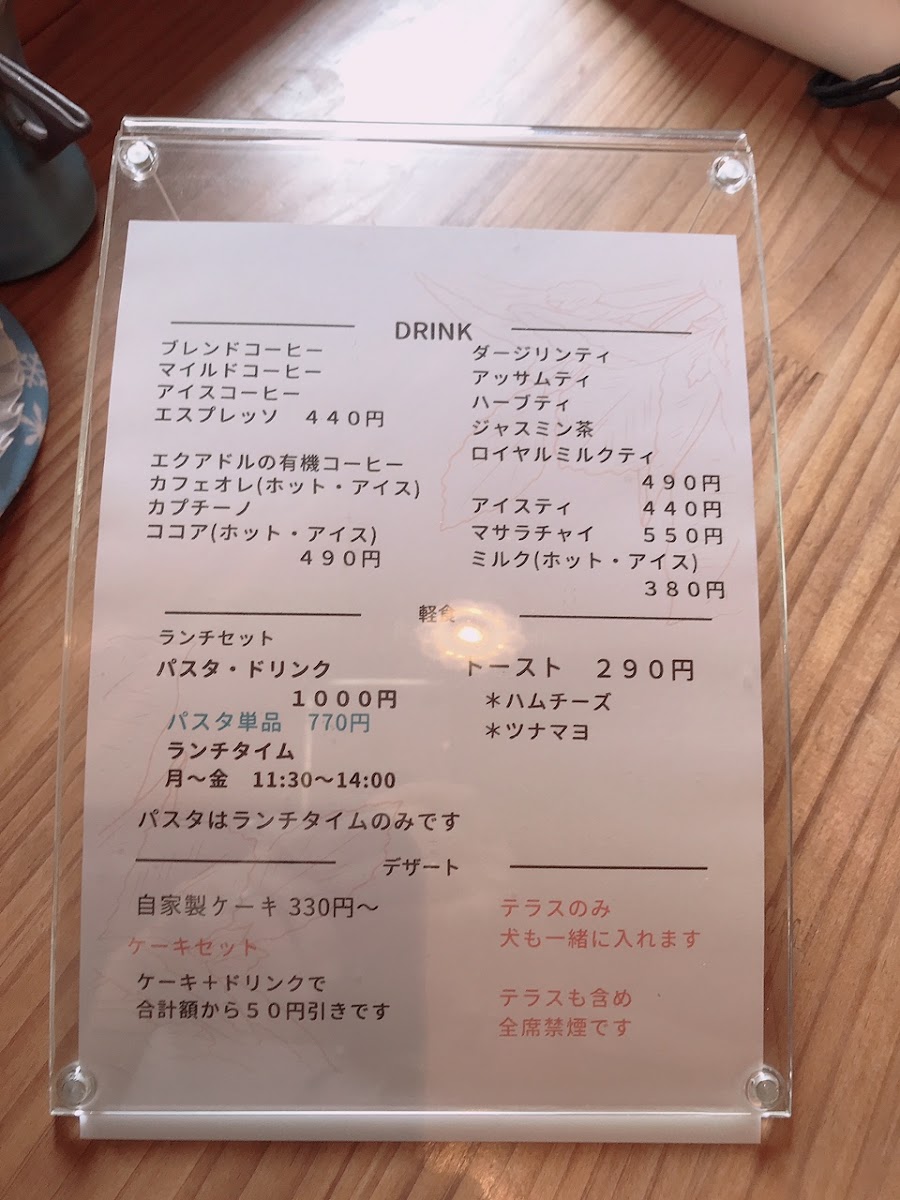 DRINK
ブレンドコーヒー
マイルドコーヒー
アイスコーヒー
エスプレッソ　４４０円
エクアドルの有機コーヒー
カフェオレ(ホット・アイス)
カプチーノ
ココア(ホット・アイス)
４９０円
ダージリンティ
アッサムティ
ハーブティ
ジャスミン茶
ロイヤルミルクティ
４９０円
アイスティ　４４０円
マサラチャイ　５５０円
ミルク(ホット・アイス)
３８０円
軽食
ランチセット
パスタ・ドリンク
１０００円
パスタ単品　770円
ランチタイム
月～金　11:30～14:00
パスタはランチタイムのみです
トースト　２９０円
＊ハムチーズ
＊ツナマヨ
デザート
自家製ケーキ 330円～
ケーキセット
ケーキ＋ドリンクで
合計額から５０円引きです
テラスのみ
犬も一緒に入れます
テラスも含め
全席禁煙です